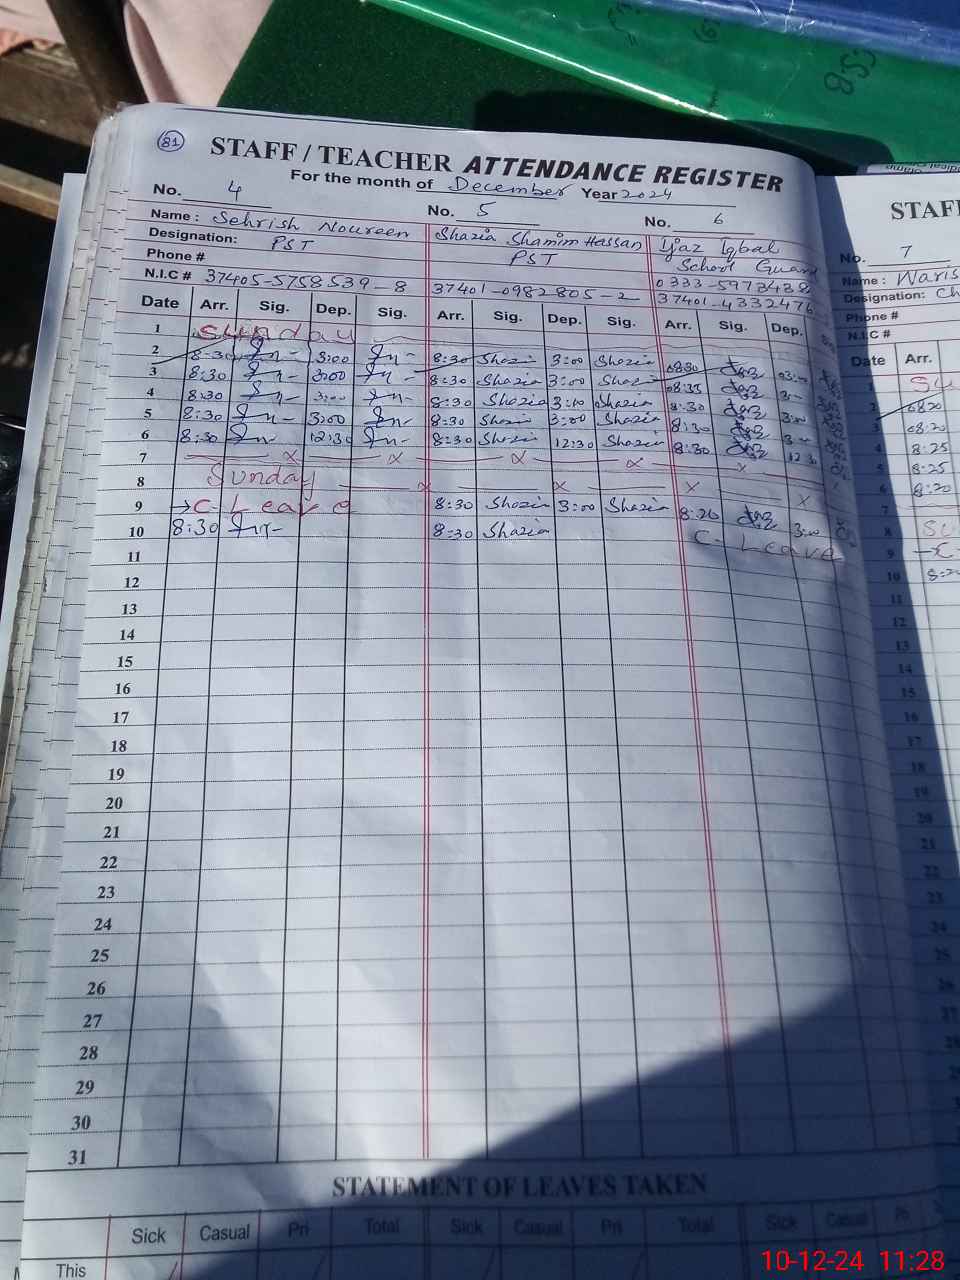 81
STAFF / TEACHER ATTENDANCE REGISTER
For the month of December Year 2024
No. 4 No. 5 No. 6
Name : Sehrish Noureen Shazia Shamim Hassan Ijaz Iqbal
Designation: PST PST School Guard
Phone # 0333-5973438
N.I.C # 37405-5758539-8 37401-0982805-2 37401-4332476
Date Arr. Sig. Dep. Sig. Arr. Sig. Dep. Sig. Arr. Sig. Dep.
1 Sunday
2 8:30 3:00 8:30 Shazia 3:00 Shazia 0830 03:00
3 8:30 3:00 8:30 Shazia 3:00 Shazia 08:35
4 8:30 3:00 8:30 Shazia 3:00 Shazia 8:30 3:00
5 8:30 3:00 8:30 Shazia 3:00 Shazia 8:30
6 8:30 12:30 8:30 Shazia 12:30 Shazia 8:30 12:30
7
8 Sunday
9 C-Leave 8:30 Shazia 3:00 Shazia 8:20 3:00
10 8:30 8:30 Shazia C-Leave
11
12
13
14
15
16
17
18
19
20
21
22
23
24
25
26
27
28
29
30
31
STATEMENT OF LEAVES TAKEN
Sick Casual Pri Total Sick Casual Pri Total Sick Casual
This
STAFF
No. 7
Name : Waris
Designation: Ch
Phone #
N.I.C #
Date Arr.
1 Su
2 0820
3 08:20
4 8:25
5 8:25
6 8:20
7
8 Su
9 C-
10
11
12
13
14
15
16
17
18
19
20
21
22
23
24
25
26
27
10-12-24 11:28